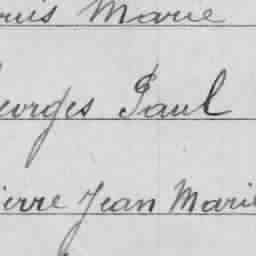 ouis Marie
eorges Paul
ierre Jean Marie